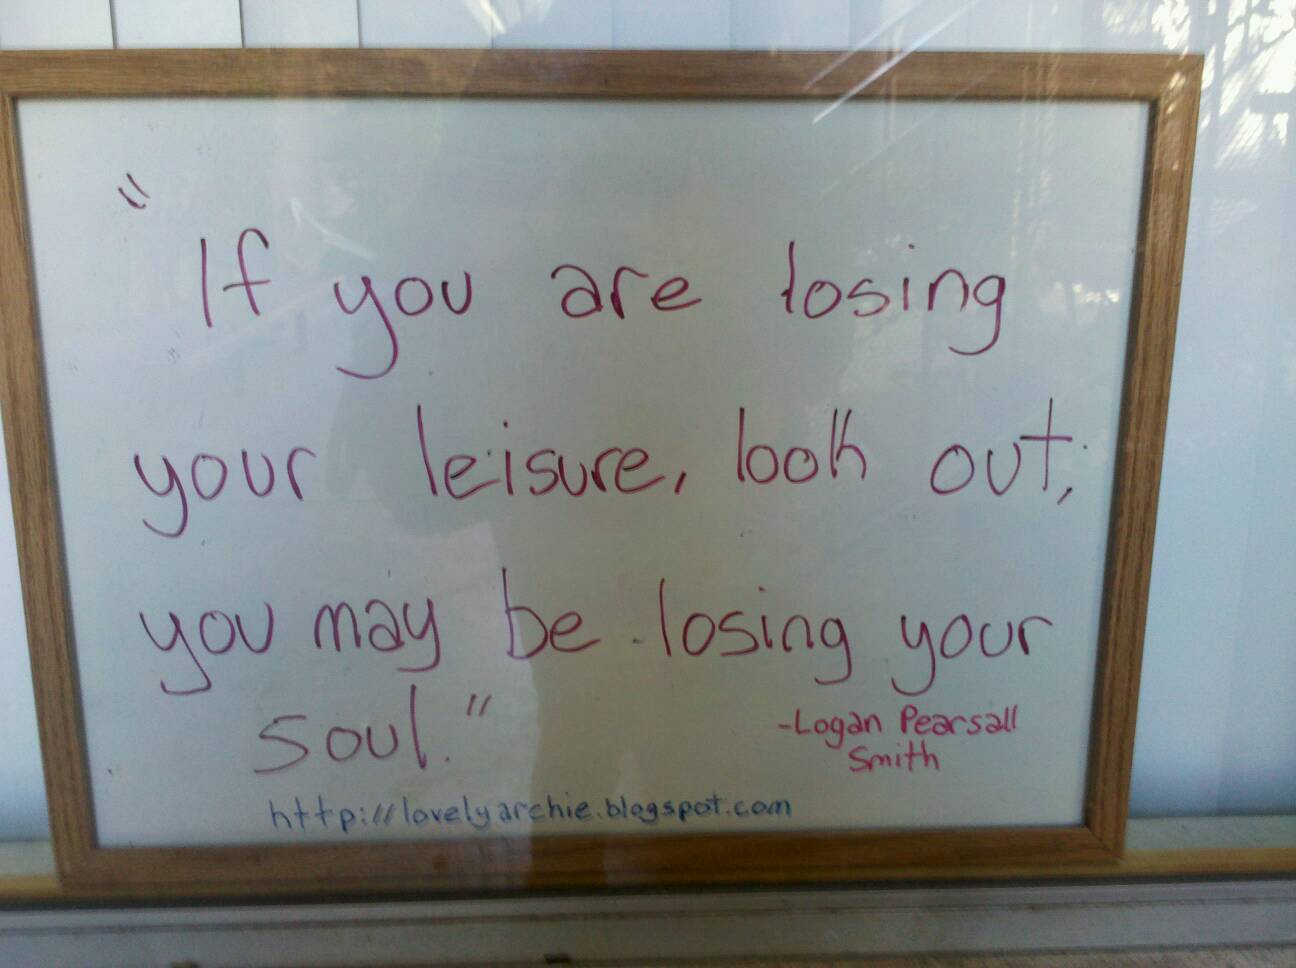 "If you are losing
your leisure, look out;
you may be losing your
soul."
-Logan Pearsall
Smith
http://lovelyarchie.blogspot.com